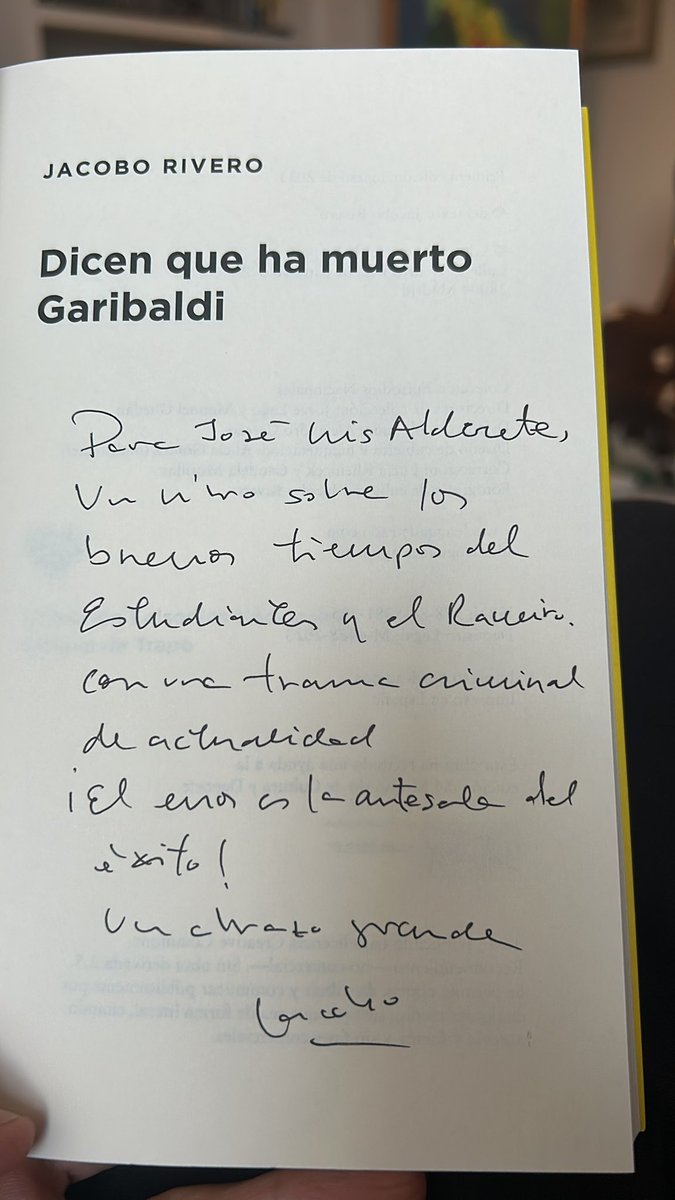 JACOBO RIVERO
Dicen que ha muerto
Garibaldi
Para José Luis Alderete,
Un libro sobre los
buenos tiempos del
Estudiantes y el Ramiro.
con una trama criminal
de actualidad
¡El error es la antesala del
éxito!
Un abrazo grande